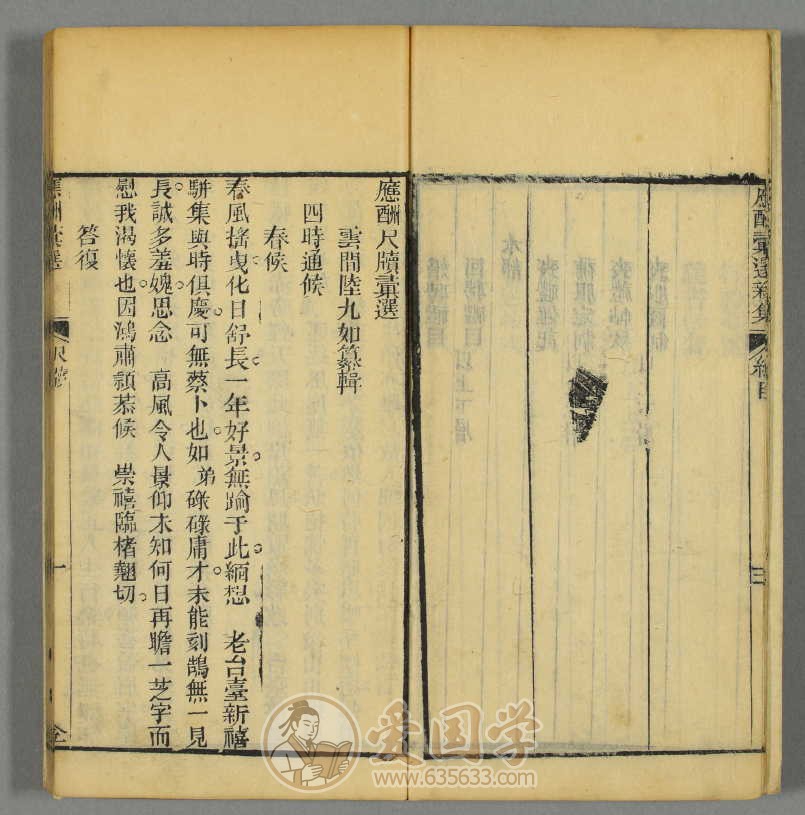 應酬彙選新集
總目
三
應酬尺牘彙選
雲間陸九如纂輯
四時通候
春候
春風搖曳化日舒長一年好景無踰于此緬想 老台臺新禧
駢集與時俱慶可無蔡卜也如弟碌碌庸才未能刻鵠無一見
長誠多羞媿思念 高風令人景仰未知何日再瞻一芝字而
慰我渴懷也因鴻肅頴恭候 崇禧臨楮翹切
答復
應酬彙選
尺牘
一
爱国学
www.635633.com